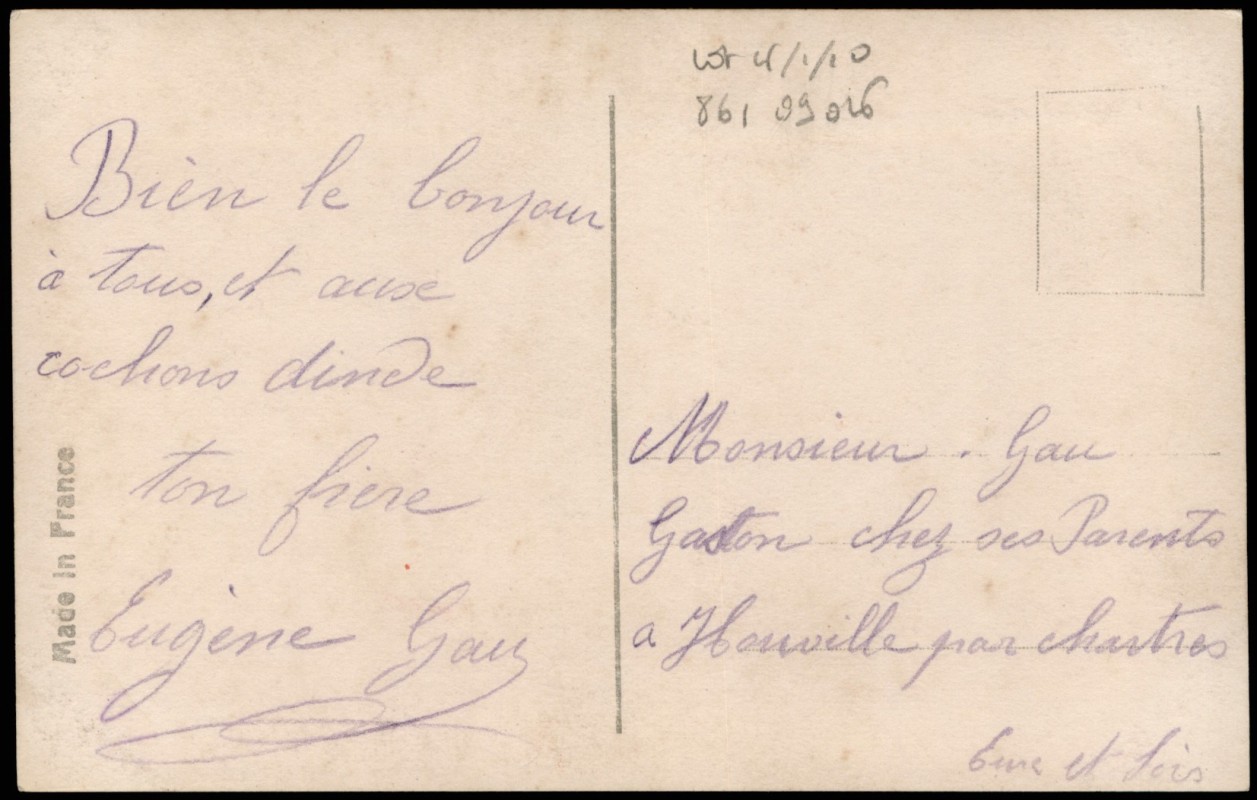 Bien le bonjour
à tous, et aux
cochons dinde
ton frère
Eugène Gau
Made in France
861 09 026
Monsieur. Gau
Gaston chez ses Parents
a Houville par chartres
Eure et Loir